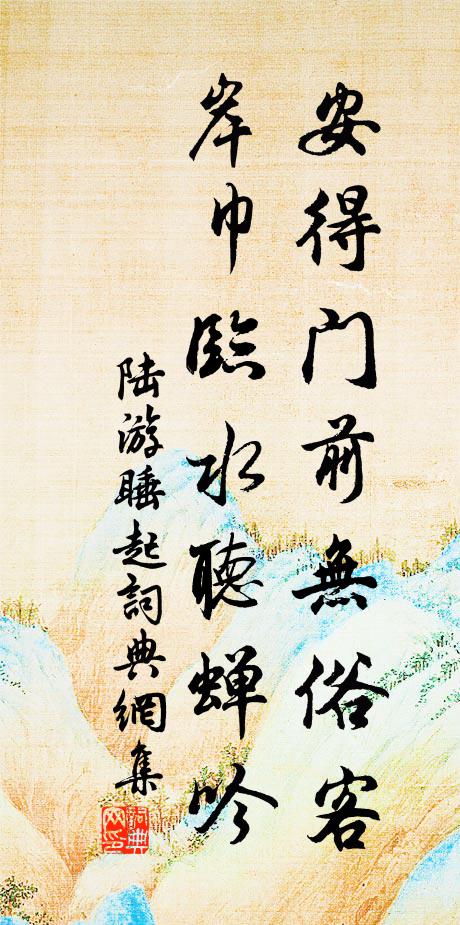 安得门前無俗客
岸巾臨水聴蝉吟
陆游睡起詞典網集
詞典